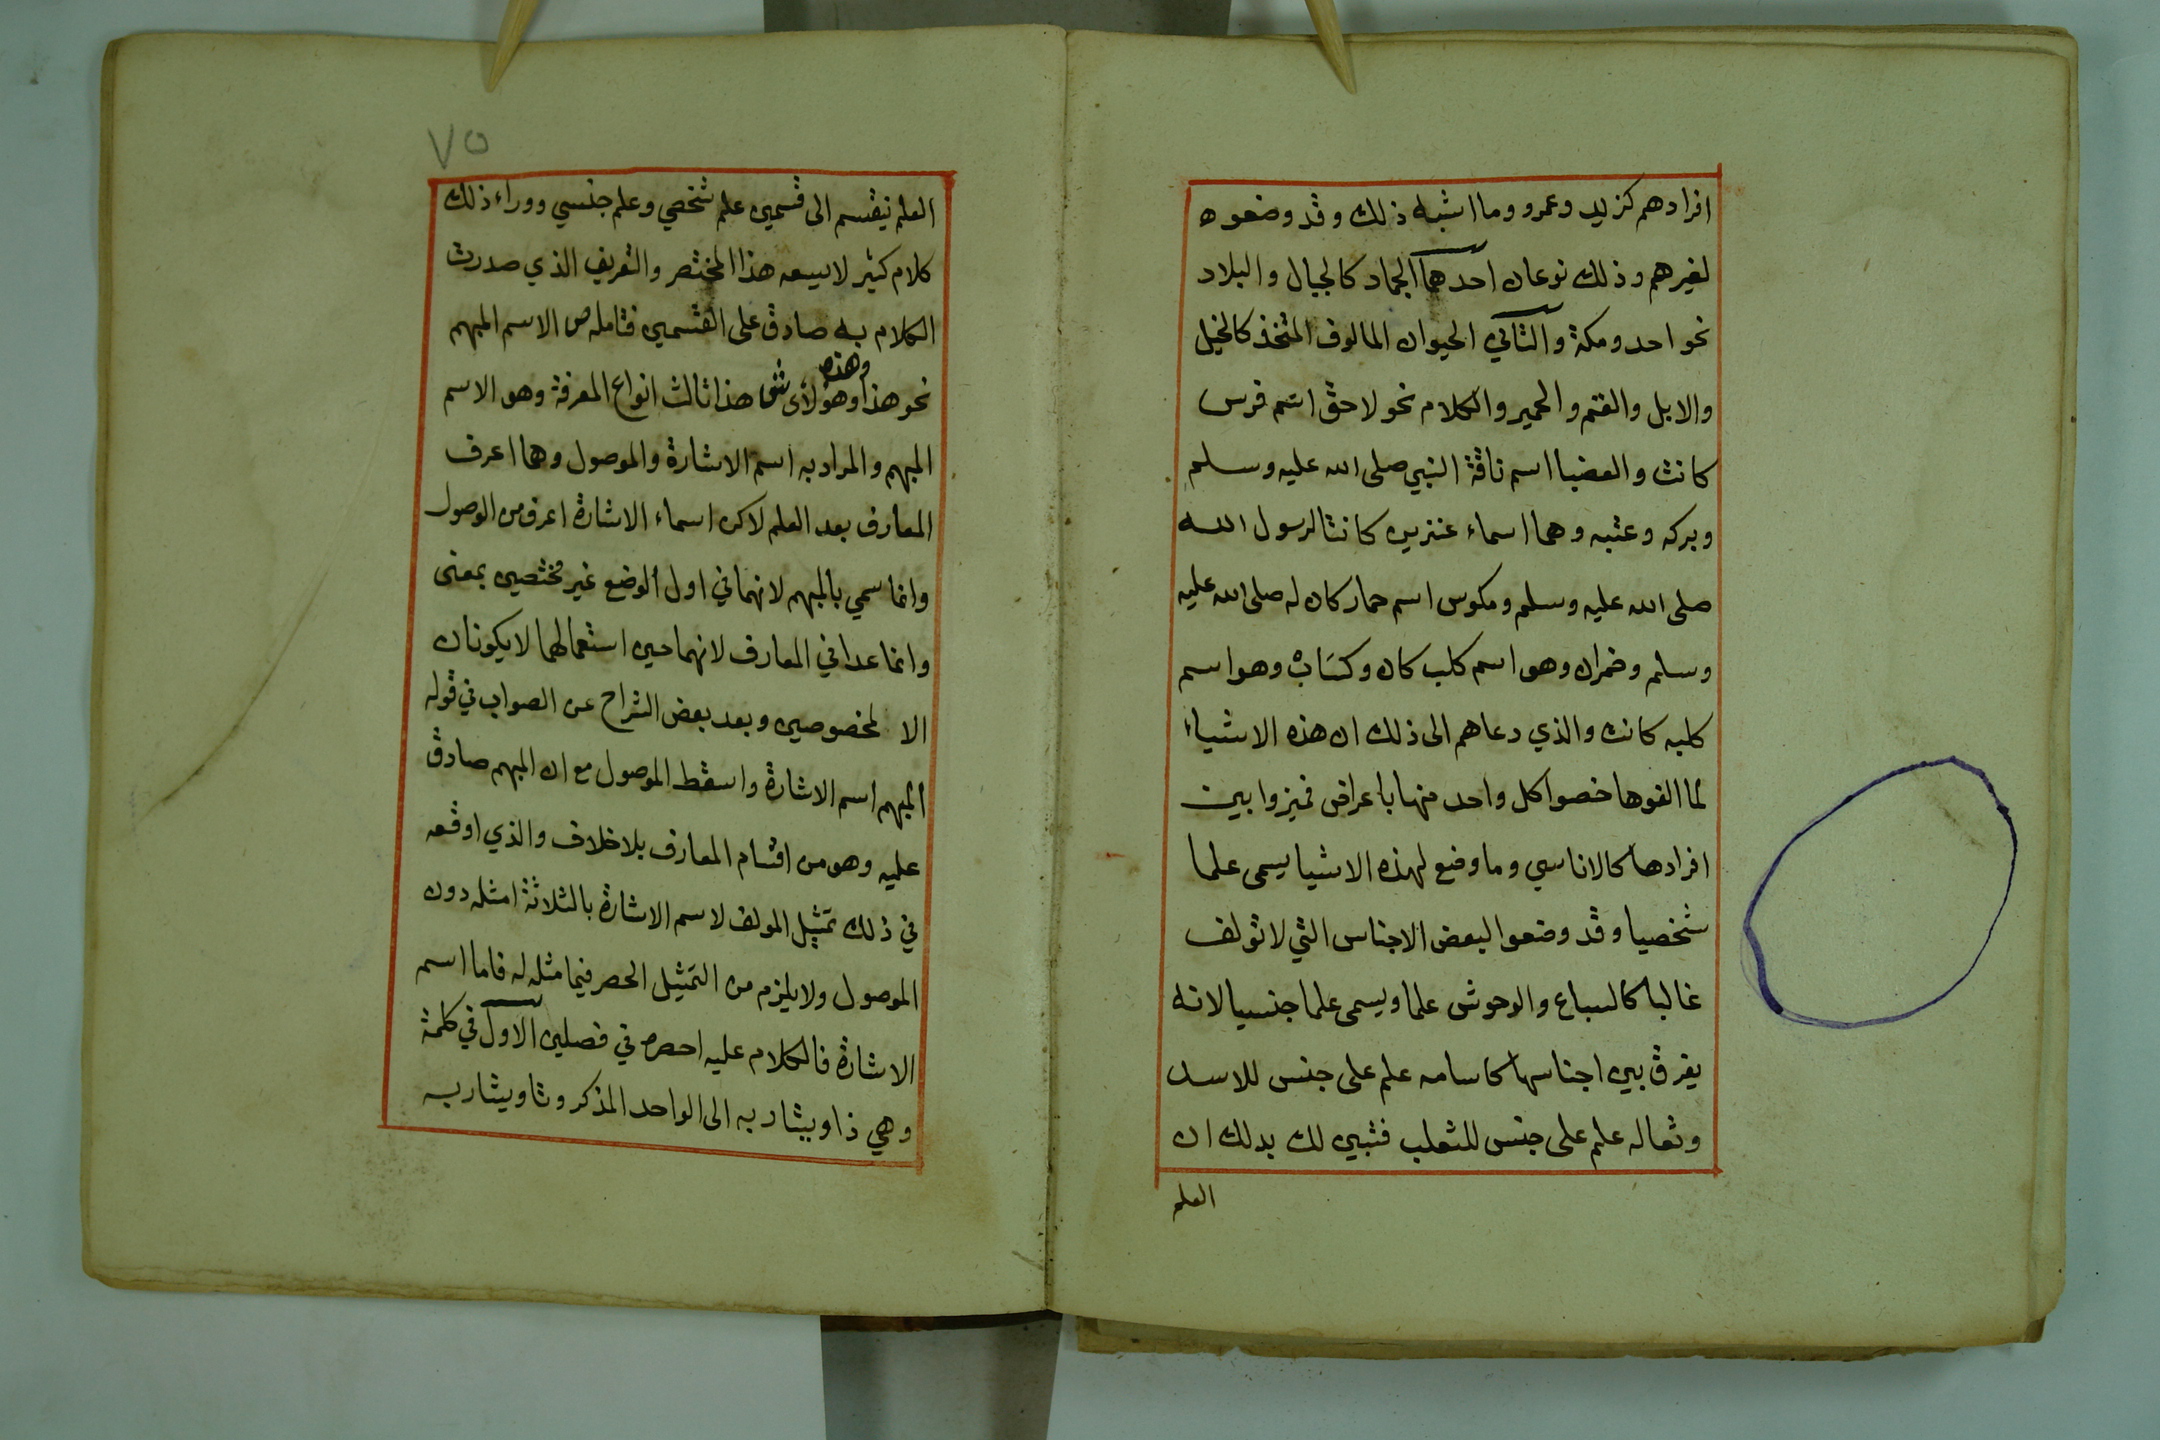 افرادهم كزيد وعمرو وما اشبه ذلك وقد وضعوه
لغيرهم وذلك نوعان احدهما الجماد كالجبال والبلاد
نحو احد ومكة والثاني الحيوان المالوف المتخذ كالخيل
والابل والغنم والحمير والكلام نحو لاحق اسم فرس
كانت والعضبا اسم ناقة النبي صلى الله عليه وسلم
وبركه وعتبه وهما اسماء عنزين كانتا لرسول الله
صلى الله عليه وسلم ومكوس اسم حمار كان له صلى الله عليه
وسلم وضمران وهو اسم كلب كان وكسَابْ وهو اسم
كلبه كانت والذي دعاهم الى ذلك ان هذه الاشياء
لما الفوها خصوا كل واحد منها باعراض فميزوا بين
افرادها كالاناسي وما وضع لهذه الاشيا يسمى علما
شخصيا وقد وضعوا لبعض الاجناس التي لا تولف
غالبا كالسباع والوحوش علما ويسمى علما جنسيا لانه
يفرق بين اجناسها كاسامه علم على جنس للاسد
وثعاله علم على جنس للثعلب فتبين لك بذلك ان
العلم
٧٥
العلم ينقسم الى قسمين علم شخصي وعلم جنسي ووراء ذلك
كلام كثير لا يسعه هذا المختصر والتعريف الذي صدرت
الكلام به صادق على القسمين فتامله ص الاسم المبهم
نحو هذا وهذه وهؤلأى ش هذا ثالث انواع المعرفة وهو الاسم
المبهم والمراد به اسم الاشارة والموصول وهما اعرف
المعارف بعد العلم لاكن اسماء الاشارة اعرف من الوصول
وانما سمي بالمبهم لانهما في اول الوضع غير مختصين بمعنى
وانما عدا في المعارف لانهما حين استعمالهما لا يكونان
الا لمخصوصين وبعد بعض الشراح عن الصواب في قوله
المبهم اسم الاشارة واسقط الموصول مع ان المبهم صادق
عليه وهو من اقسام المعارف بلا خلاف والذي اوقعه
في ذلك تمثيل المولف لاسم الاشارة بالثلاثة امثله دون
الموصول ولا يلزم من التمثيل الحصر فيما مثله له فاما اسم
الاشارة فالكلام عليه احصره في فصلين الاول في كلمة
وهي ذا ويشار به الى الواحد المذكر وتا ويشار به